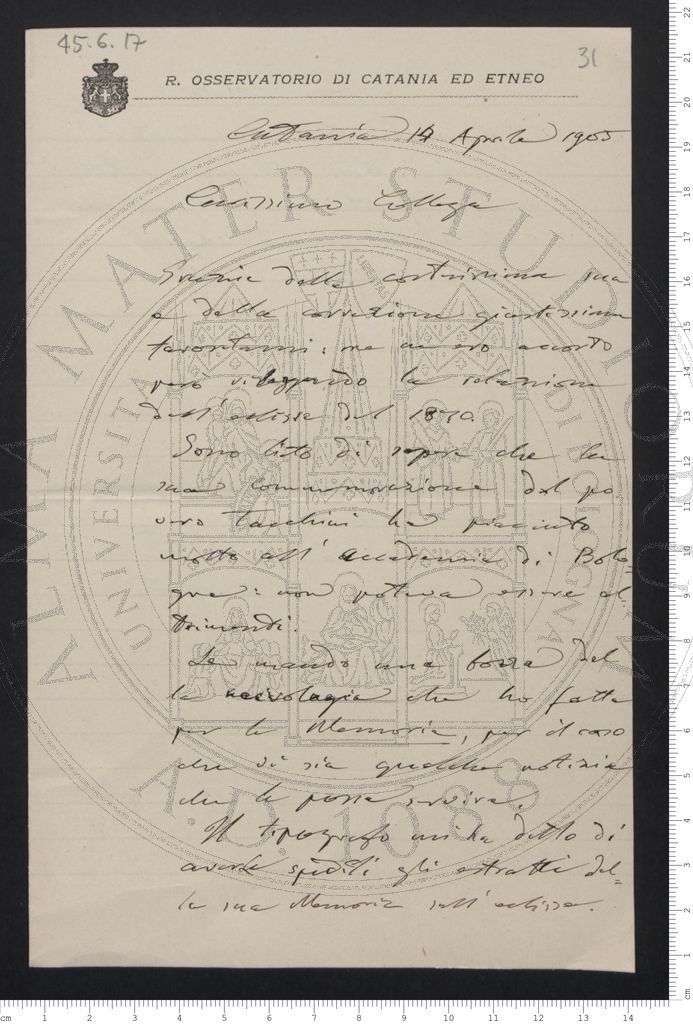 45.6.17
31
R. OSSERVATORIO DI CATANIA ED ETNEO
Catania 14 Aprile 1905
Carissimo Collega
Grazie della cortesissima sua
e della correzione giustissima
favoritami: me ne ero accorto
però rileggendo la relazione
dell'eclisse del 1870.
Sono lieto di sapere che la
sua commemorazione del po
vero Tacchini ha piaciuto
molto all'Accademia di Bolo-
gna: non poteva essere al-
trimenti.
Le mando una bozza del
la necrologia che ho fatta
per le Memorie, per il caso
che vi sia qualche notizia
che le possa servire.
Il tipografo mi ha detto di
averle spediti gli estratti del=
la sua Memoria sull'eclisse.
ALMA MATER STUDIORUM
UNIVERSITA DI BOLOGNA
LIBERTAS
A.D. 1088